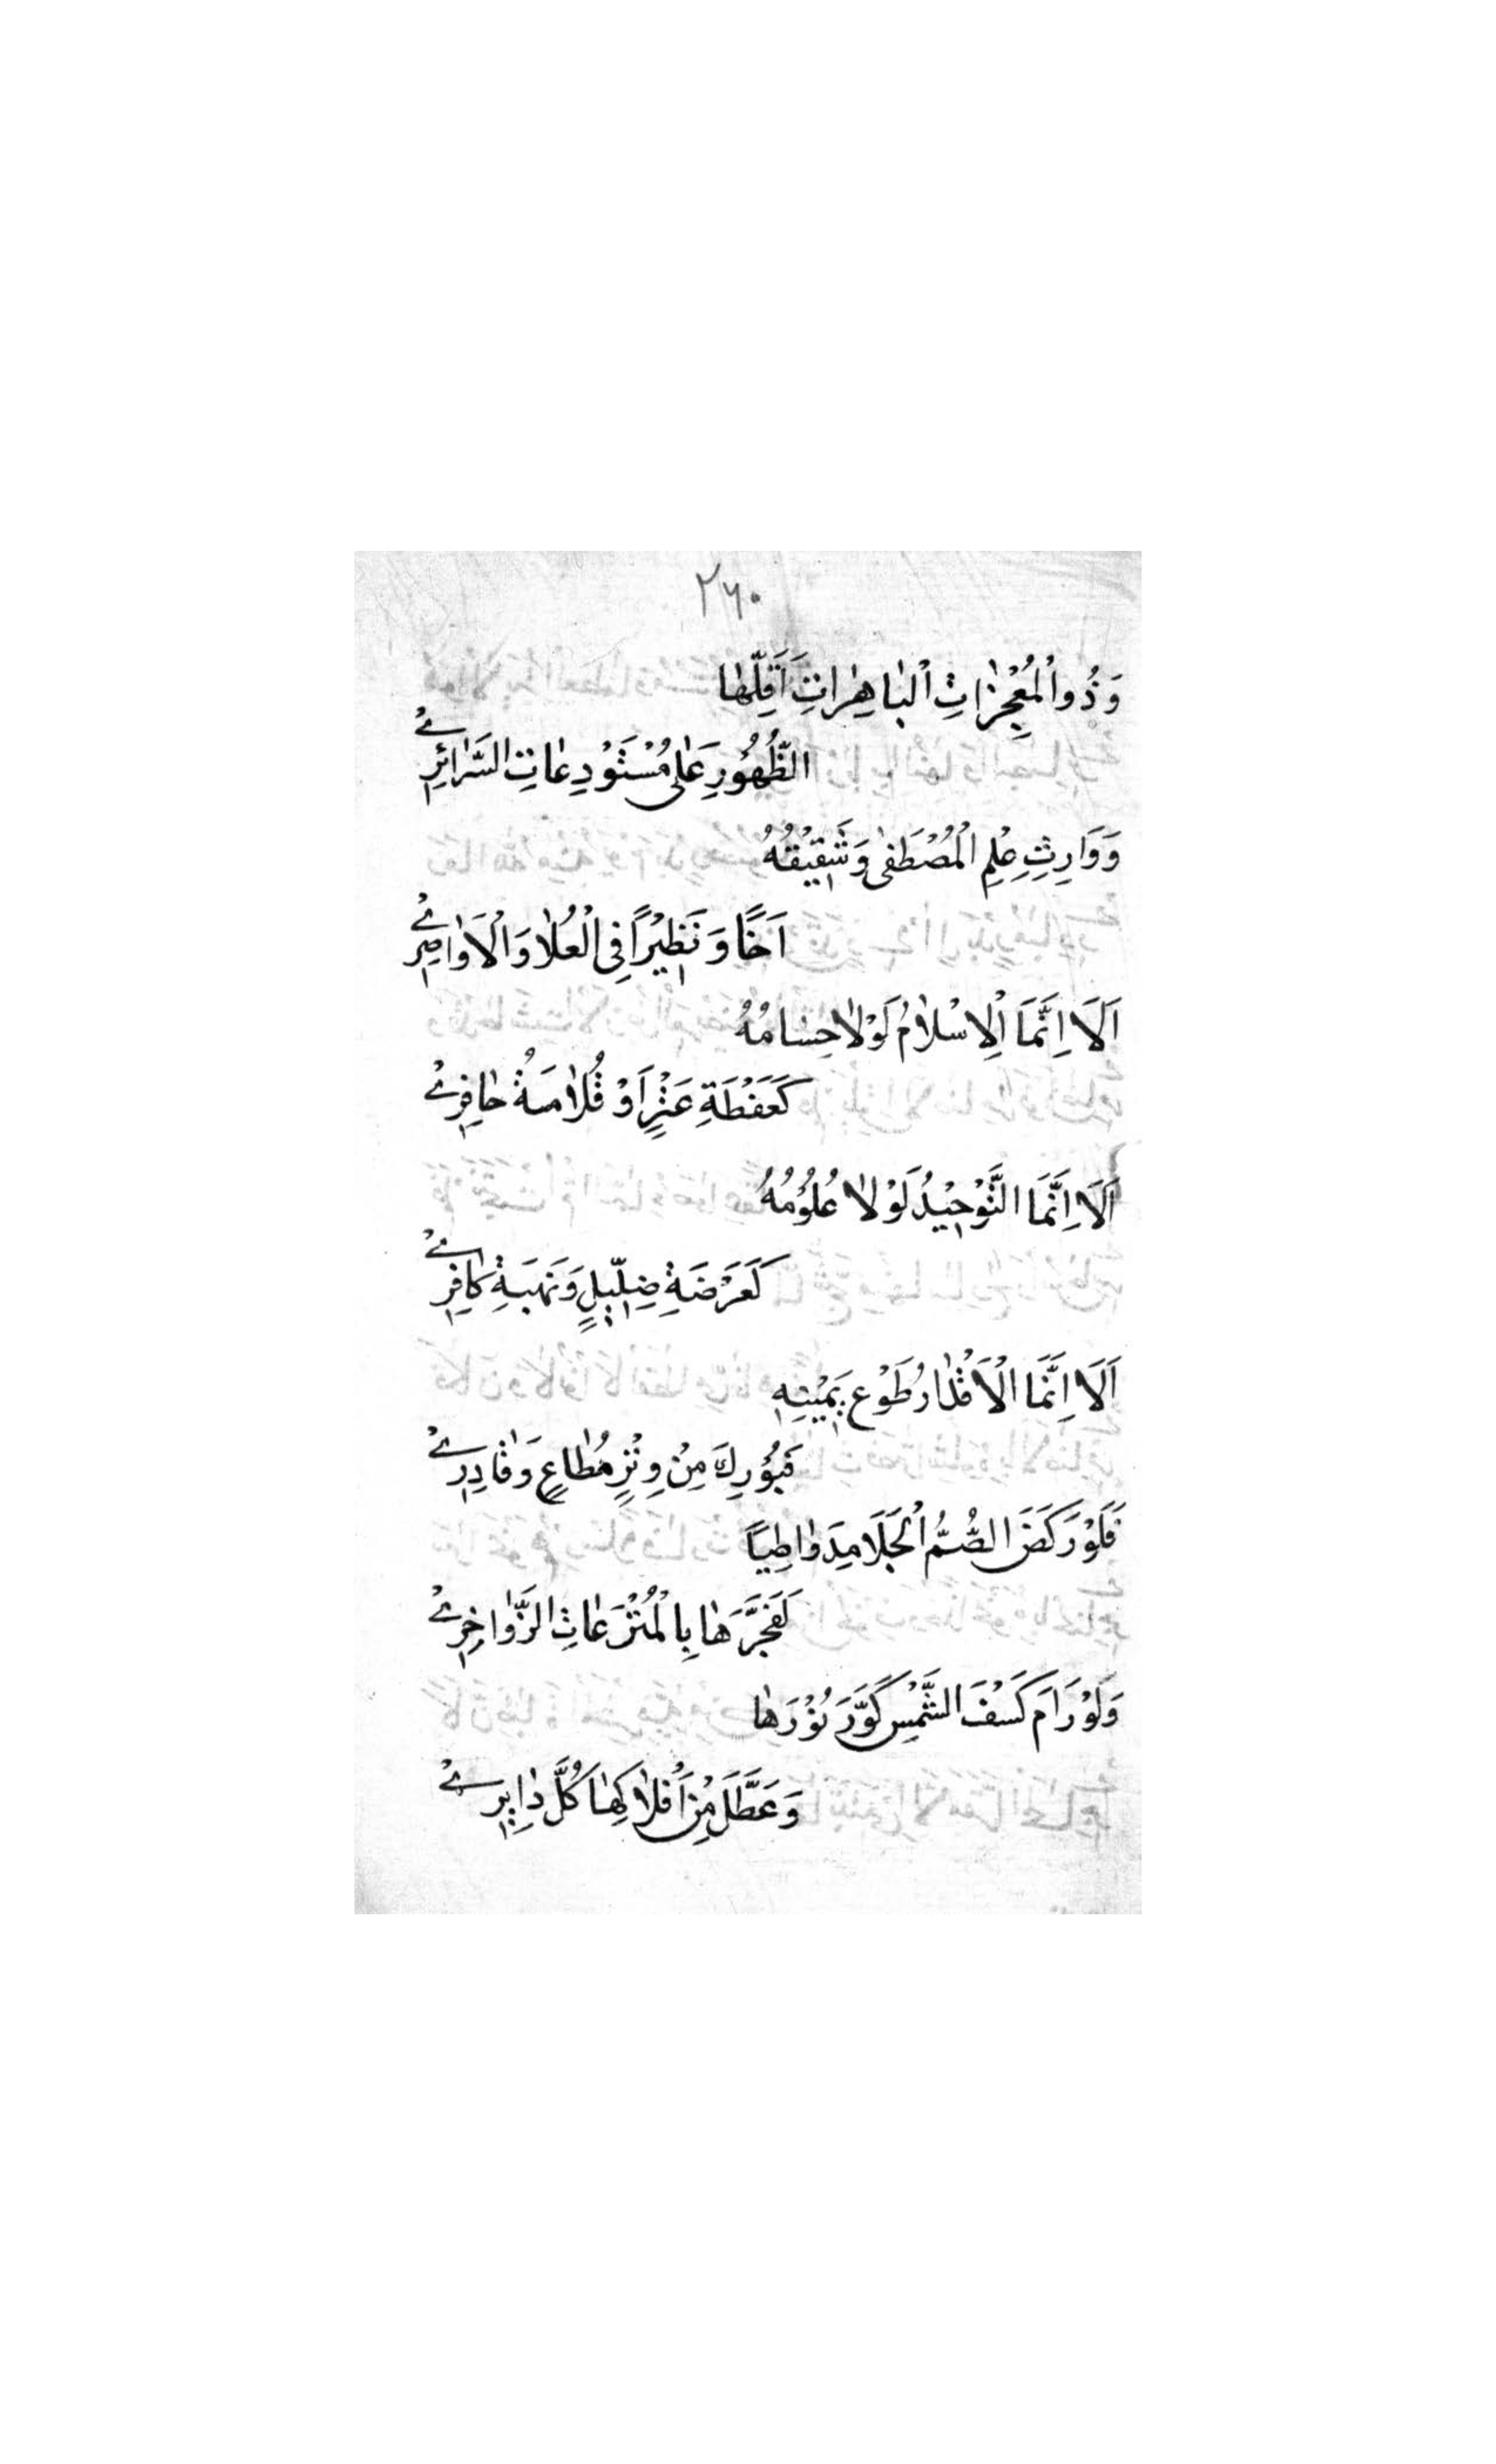 ٢٦٠
وَذُواْلمُعْجِزٰاتِ اْلبٰاهِرٰاتِ اَقَلَّهٰا
الظُّهُوُرِ عَلٰى مُسْتَوْدِعٰاتِ السَّرٰائِرِ
وَوَارِثِ عِلْمِ الْمُصْطَفٰى وَشَقيْقُهُ
اَخًا وَنَظيْرًا فِى الْعُلٰا وَالْاَوٰاصِرِ
اَلَا اِنَّمَا اْلاِسْلٰامُ لَوْلٰا حِسٰامُهُ
كَعَفْطَةِ عَنْزٍ اَوْ قُلٰامَةُ حٰافِرِ
اَلَا اِنَّمَا التَّوْحيْدُ لَوْلٰا عُلُوُمُهُ
كَعَرْضَةِ ضِلّيلٍ وَنَهبَةِ كٰافِرِ
اَلَا اِنَّمَا الْاَقْدٰارُ طَوْع يَميْنِهِ
فَبُوُرِكَ مِنْ وِتْرٍ مُطٰاعٍ وَقٰادِرِ
فَلَوْ رَكَضَ الصُّمُّ اْلجَلَامِدَ وٰاطِيًا
لَفَجَّرَهٰا بِالْمُتْرَعٰاتِ الزَّوٰاخِرِ
وَلَوْ رَامَ كَسْفَ الشَّمْسِ كَوَّرَ نُوْرَهٰا
وَعَطَّلَ مِنْ اَفْلٰاكِهٰا كُلَّ دٰايِرِ